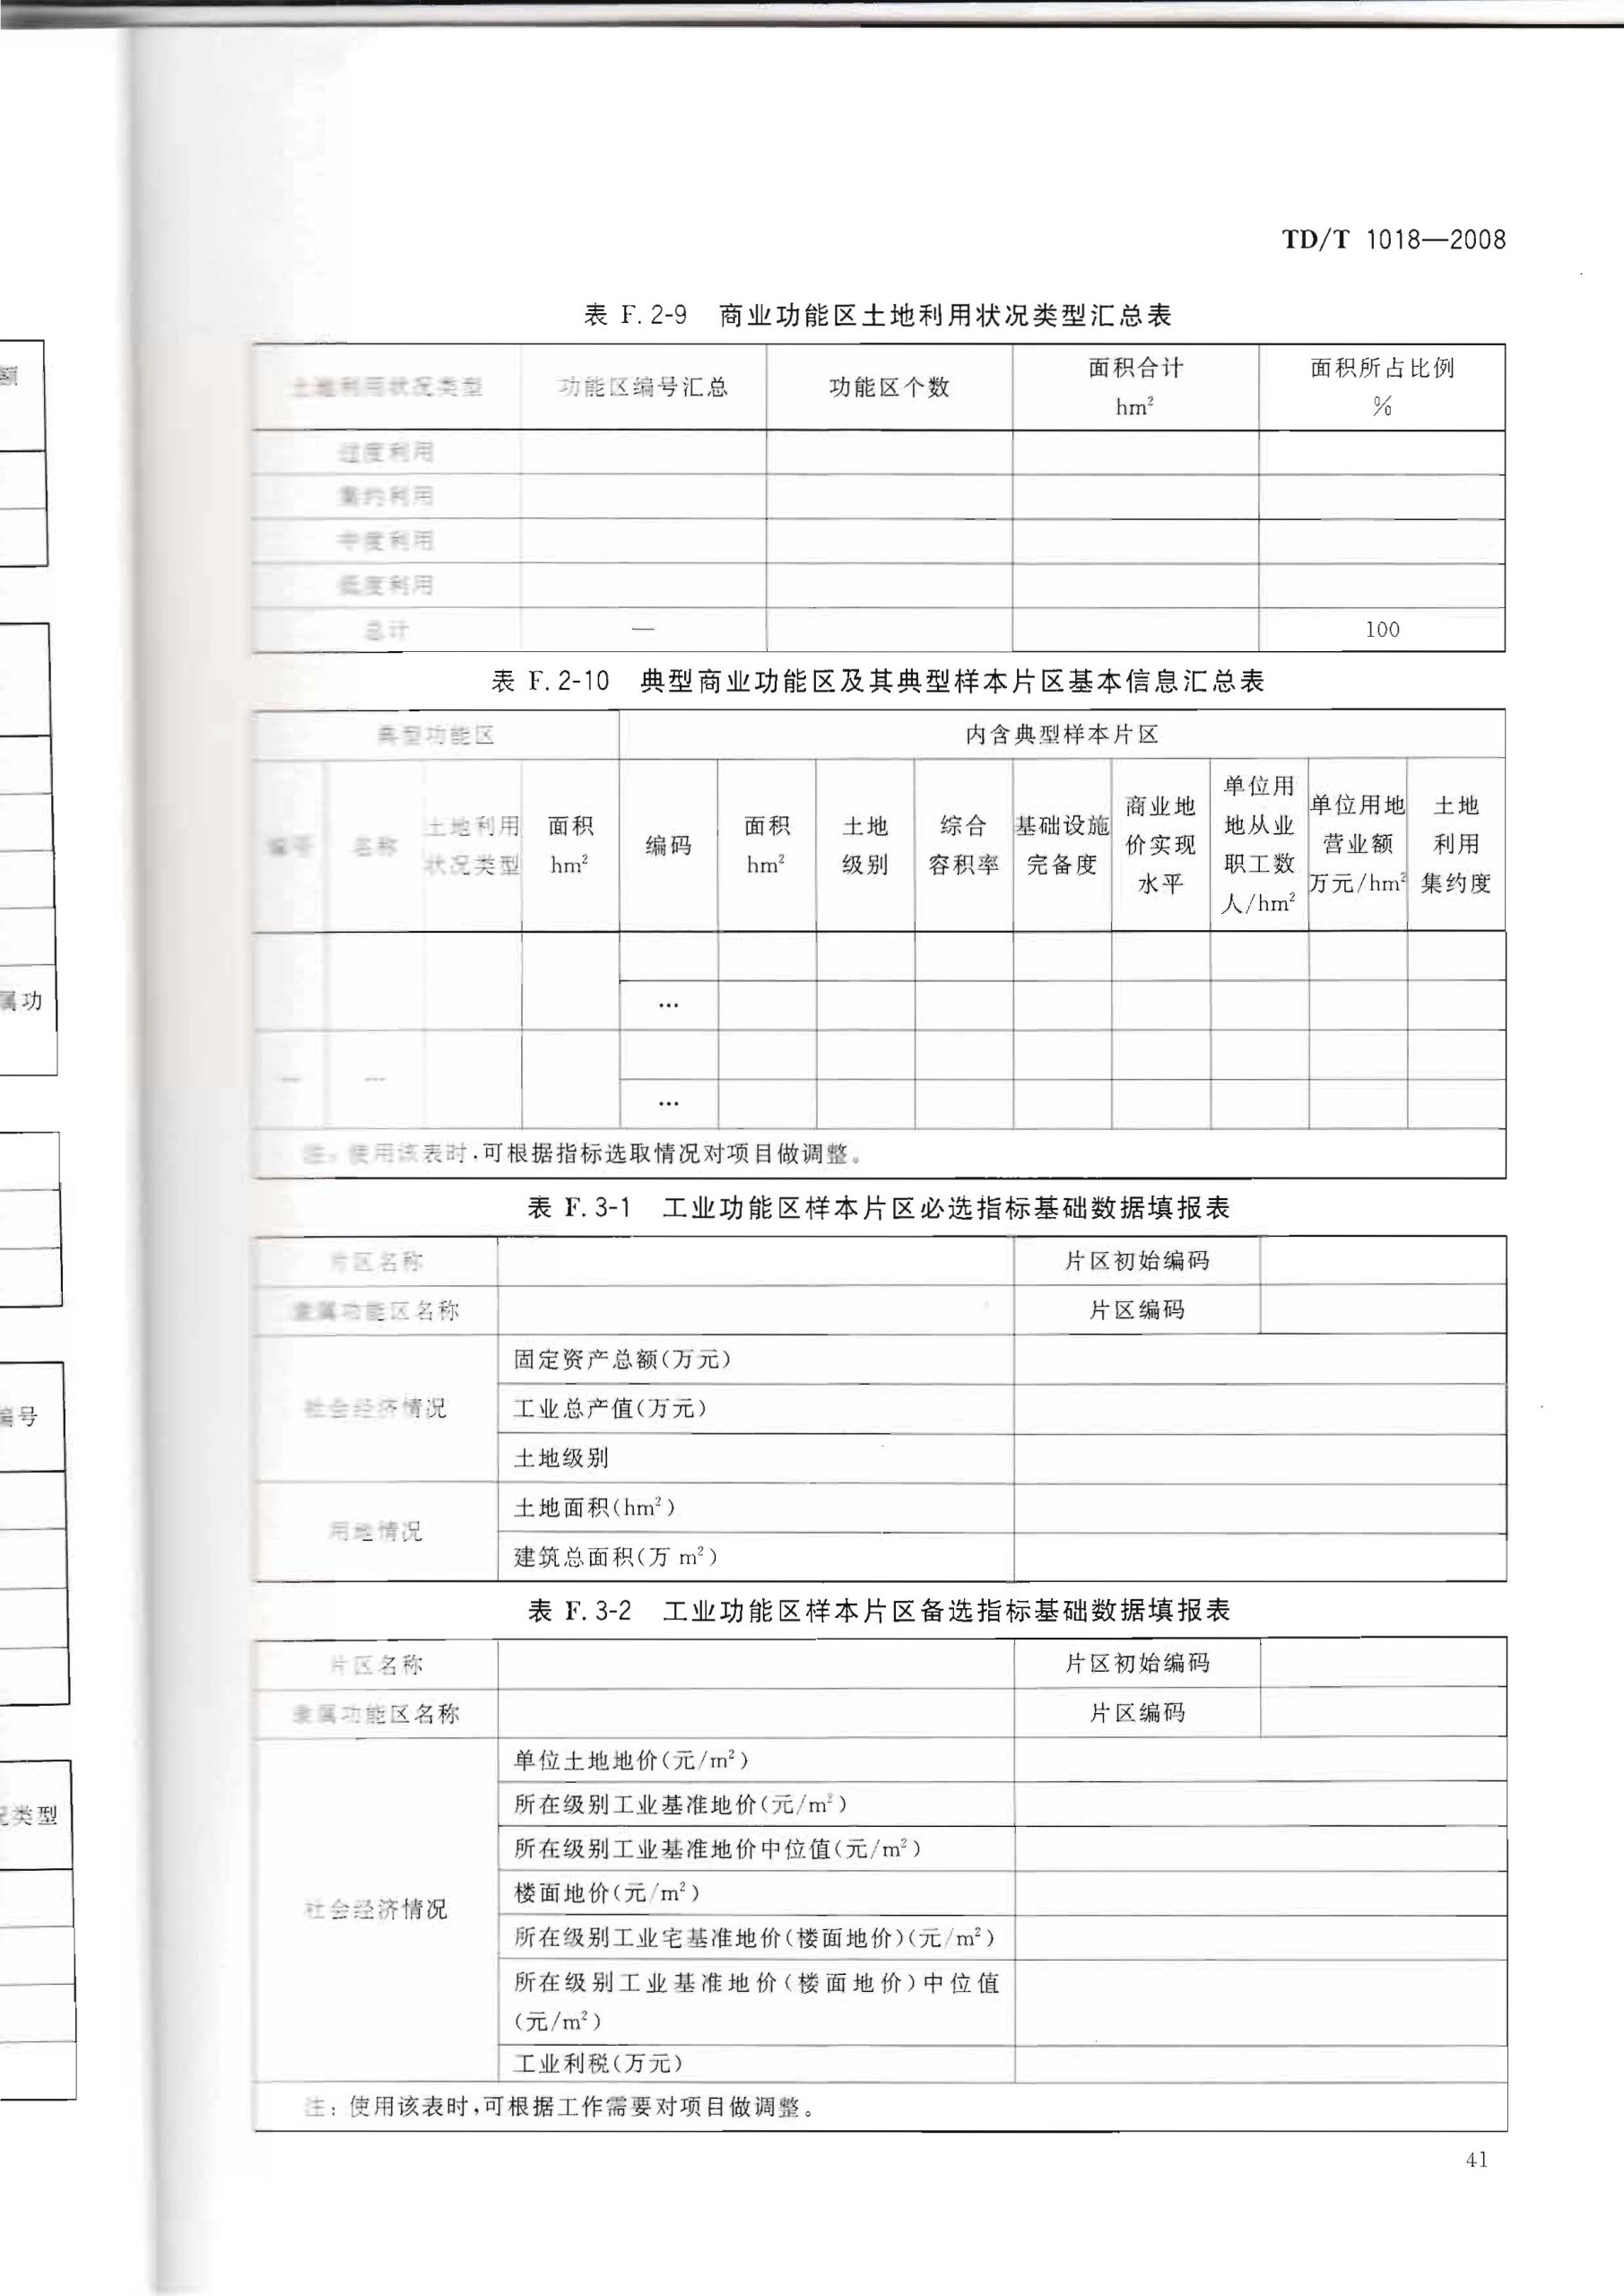 TD/T 1018—2008
表 F.2-9 商业功能区土地利用状况类型汇总表
土地利用状况类型 功能区编号汇总 功能区个数 面积合计 hm² 面积所占比例 %
过度利用
集约利用
中度利用
低度利用
总计 — 100
表 F.2-10 典型商业功能区及其典型样本片区基本信息汇总表
典型功能区 内含典型样本片区
编号 名称 土地利用状况类型 面积 hm² 编码 面积 hm² 土地级别 综合容积率 基础设施完备度 商业地价实现水平 单位用地从业职工数 人/hm² 单位用地营业额 万元/hm² 土地利用集约度
…
… …
…
注：使用该表时，可根据指标选取情况对项目做调整。
表 F.3-1 工业功能区样本片区必选指标基础数据填报表
片区名称 片区初始编码
隶属功能区名称 片区编码
社会经济情况 固定资产总额(万元)
工业总产值(万元)
土地级别
用地情况 土地面积(hm²)
建筑总面积(万 m²)
表 F.3-2 工业功能区样本片区备选指标基础数据填报表
片区名称 片区初始编码
隶属功能区名称 片区编码
社会经济情况 单位土地地价(元/m²)
所在级别工业基准地价(元/m²)
所在级别工业基准地价中位值(元/m²)
楼面地价(元/m²)
所在级别工业宅基准地价(楼面地价)(元/m²)
所在级别工业基准地价(楼面地价)中位值
(元/m²)
工业利税(万元)
注：使用该表时，可根据工作需要对项目做调整。
41
属功
编号
类型